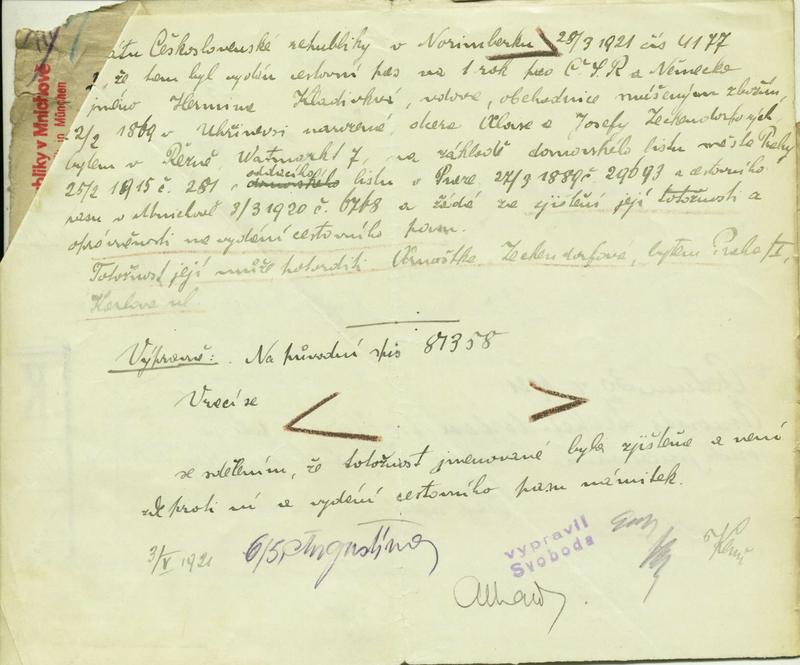 bliky v Mnichově
in München
átu Československé republiky v Norimberku 28/3 1921 čís 4177
, že tam byl vydán cestovní pas na 1 rok pro Č.S.R a Německo
jméno Hermina Kladivková, vdova, obchodnice smíšeným zbožím,
2/2 1869 v Uhříněvsi narozená, dcera a Josefy Zeckendorfových,
bytem v Řezně, Watmarkt 7, na základě domovského listu města Prahy
25/2 1915 č. 281, oddacího domovského listu v Praze 27/3 1889 č. 29693 a cestovního
pasu v Mnichově 3/3 1920 č. 6768 a žádá za zjištění její totožnosti a
oprávněnosti na vydání cestovního pasu.
Totožnost její může potvrditi Arnoštka Zeckendorfova, bytem Praha /I,
Karlova ul.
Výpravně: Na původní spis 87358
Vrací se
se sdělením, že totožnost jmenované byla zjištěna a není
zde proti ní a vydání cestovního pasu námitek.
3/V 1921 6/5. Augustína
vypravil
Svoboda